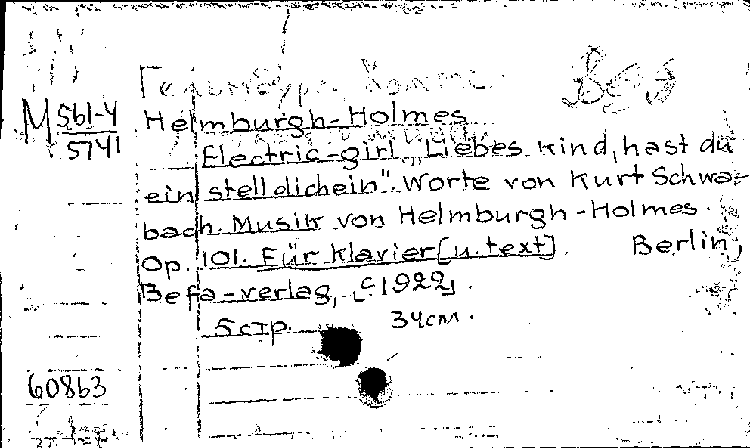 M 561-4
5741
Helmburgh-Holmes
Electric-girl „Liebes Kind, hast du
ein stelldichein". Worte von Kurt Schwa-
bach. Musik von Helmburgh-Holmes.
Op. 101. Für Klavier [u. text]. Berlin,
Befa-verlag, [c1922].
5 стр. 34 см.
60863